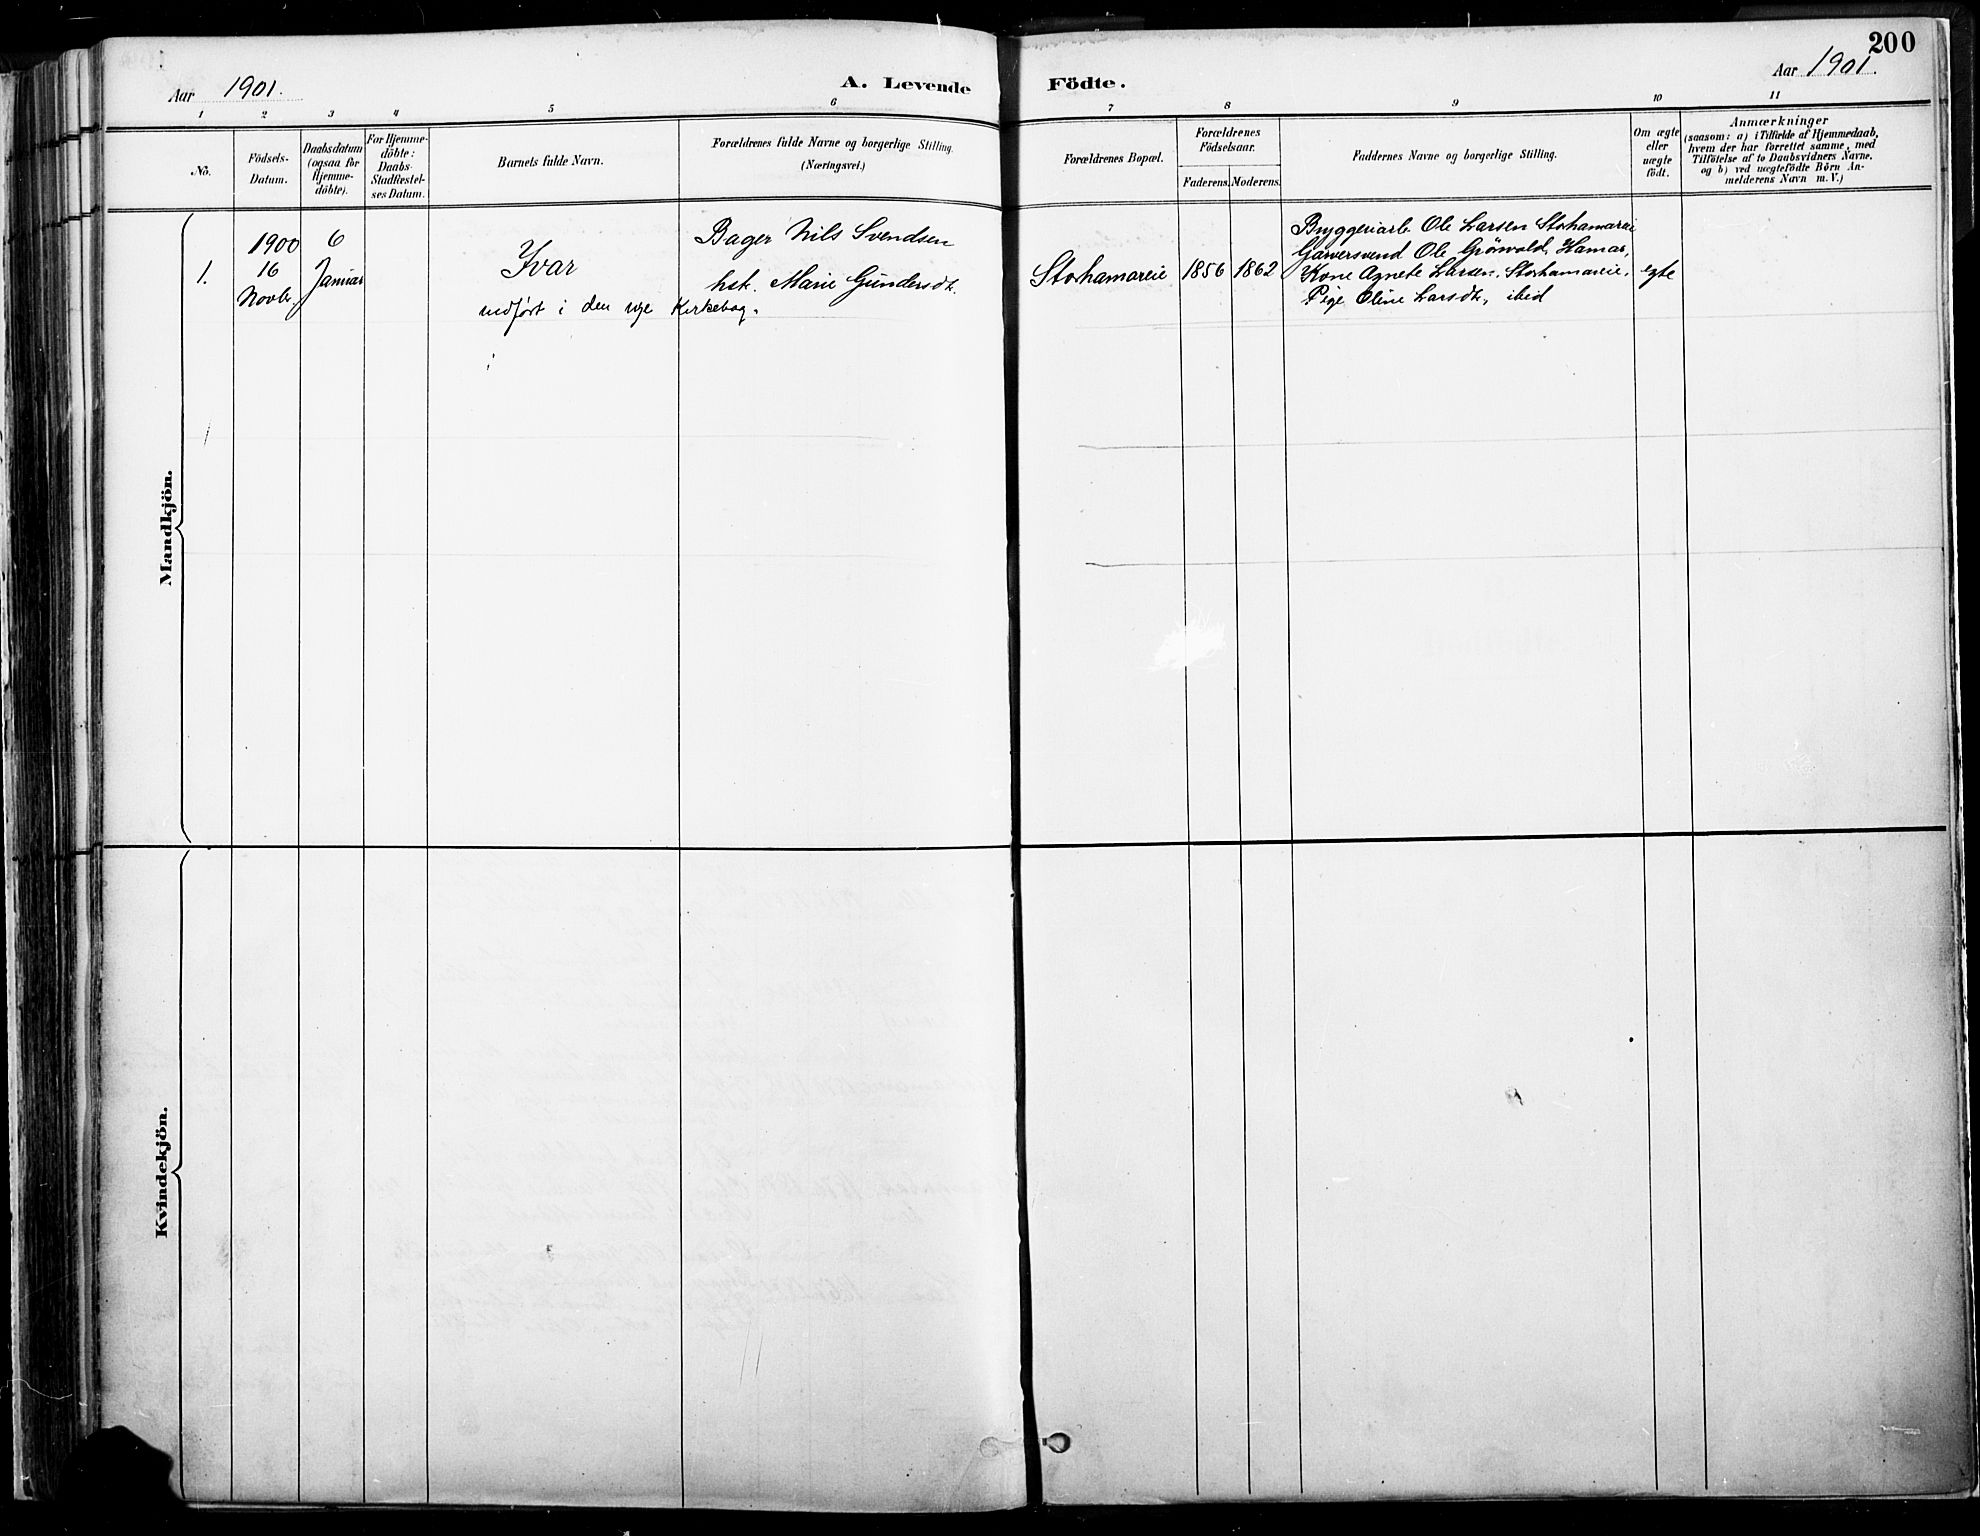 200
Aar 1901.
A. Levende Födte.
Aar 1901.
1 2 3 4 5 6 7 8 9 10 11
No.
Födsels-
Datum.
Daabsdatum
(ogsaa for
Hjemme-
döbte).
For Hjemme-
döbte:
Daabs-
Stadfæstel-
ses Datum.
Barnets fulde Navn.
Forældrenes fulde Navne og borgerlige Stilling.
(Næringsvei.)
Forældrenes Bopæl.
Forældrenes
Födselsaar.
Faderens. Moderens.
Faddernes Navne og borgerlige Stilling.
Om ægte
eller
uægte
födt.
Anmærkninger
(saasom: a) i Tilfælde af Hjemmedaab,
hvem der har forrettet samme, med
Tilföielse af to Daabsvidners Navne.
og b) ved uægtefödte Börn An-
melderens Navn m. V.)
Mandkjön.
1.
1900
16
Novbr.
6
Januar
Yvar
Bager Nils Svendsen
hst. Marie Gundersdt.
indfört i den nye Kirkebog.
Storhamareie
1856
1862
Bryggeriarb. Ole Larsen Storhamareie
Garversvend Ole Grönvold, Hamar,
Kone Agnete Larsen, Storhamareie,
Pige Oline Larsdt, ibid
egte
Kvindekjön.